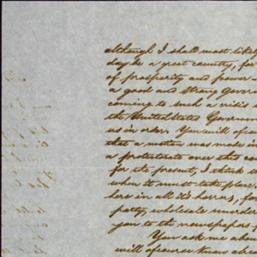 although I shall most likely
day be a great country, for
of prosperity and power
a good and strong Govern
coming to such a crisis
the United States Governme
us in order. You will of cour
that a motion was made in
a protectorate over this co
for the present, I think
when it must take place.
here in all it's horrors, for
party, wholesale murder
you to the newspapers f
You ask me abou
will of course know alrea